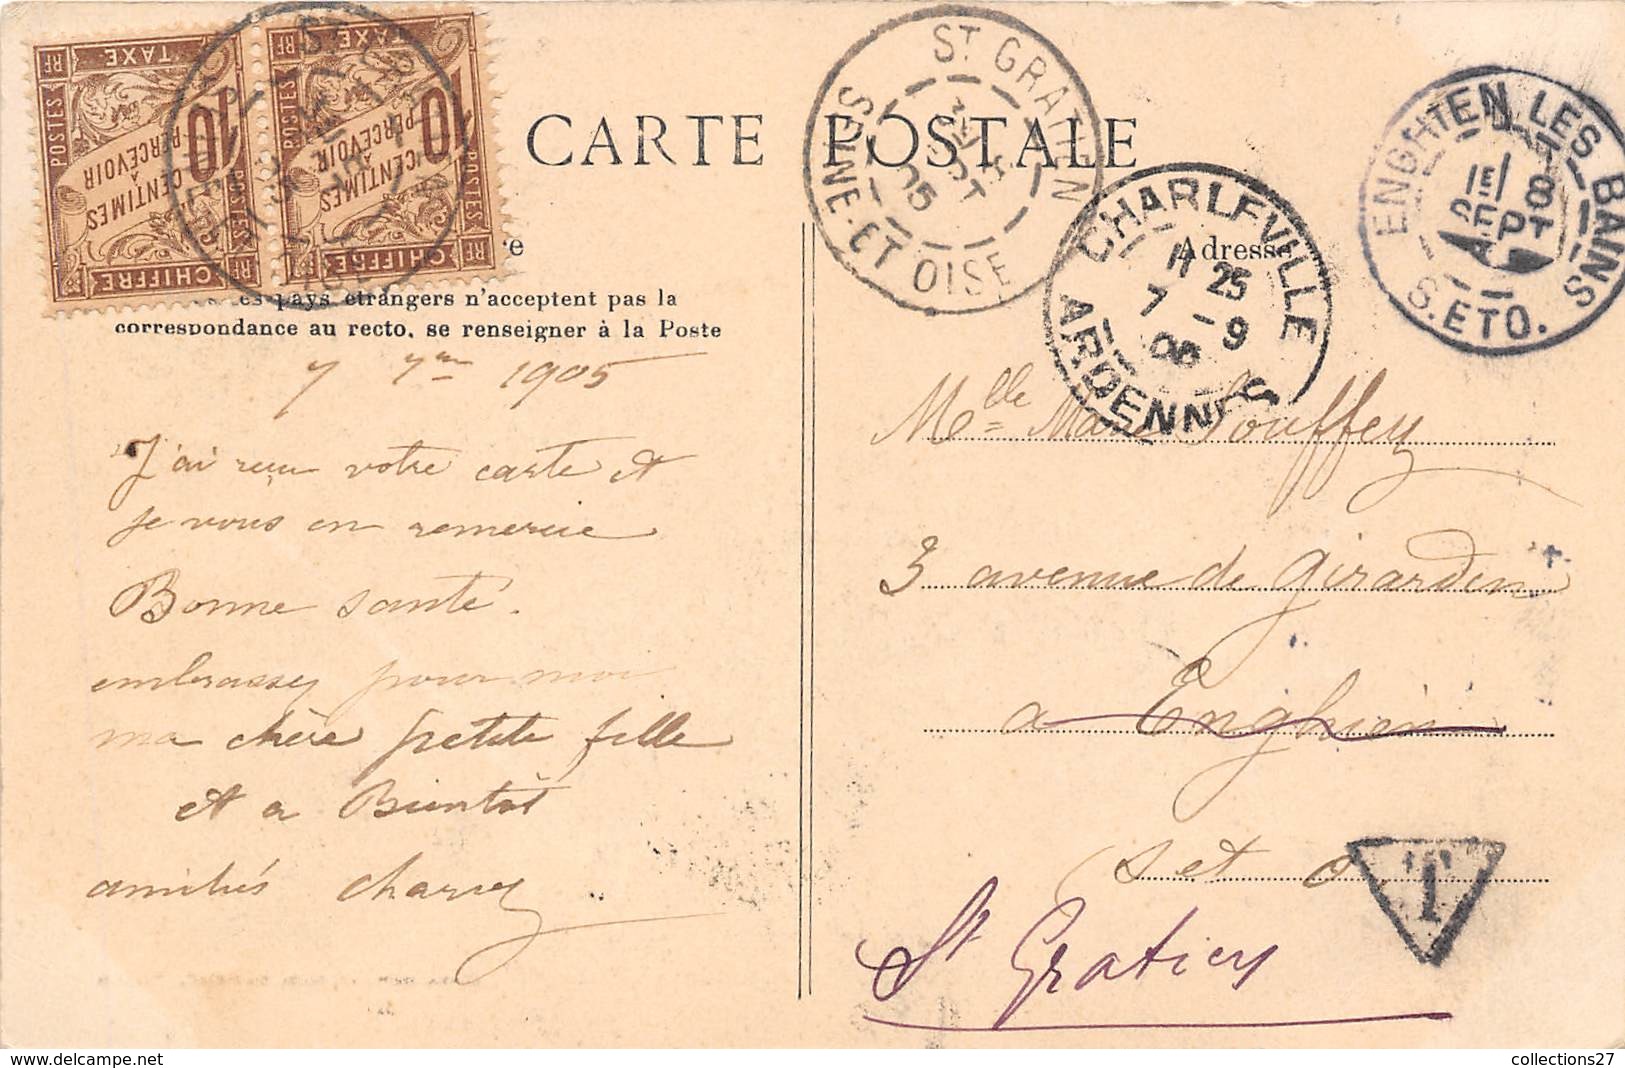 CARTE POSTALE
pays étrangers n'acceptent pas la
correspondance au recto, se renseigner à la Poste
7 7bre 1905
J'ai reçu votre carte et
je vous en remercie
Bonne santé.
embrassez pour moi
ma chère petite fille
et a Bientôt
amitiés
POSTES
TAXE
RF
10
CENTIMES
À
PERCEVOIR
CHIFFRE
POSTES
TAXE
RF
10
CENTIMES
À
PERCEVOIR
CHIFFRE
ST GRATIEN
05
SEINE-ET-OISE
CHARLEVILLE
11 25
7 - 9
05
ARDENNES
ENGHIEN LES BAINS
1E
8
SEPT
S. ET O.
Adresse
Melle Marie
3 avenue de Girardin
a Enghien
S et O
T
St Gratien
collections27